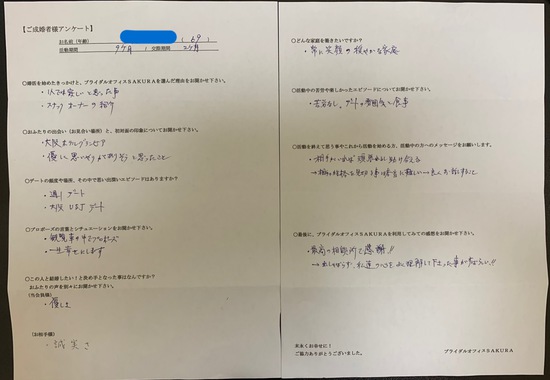 【ご成婚者様アンケート】
お名前（年齢） （69）
活動期間 9ヶ月 / 交際期間 2ヶ月
○婚活を始めたきっかけと、ブライダルオフィスSAKURAを選んだ理由をお聞かせ下さい。
・1人では寂しいと思った事
・スタッフ オーナーの紹介
○おふたりの出会い（お見合い場所）と、初対面の印象についてお聞かせ下さい。
・大阪 ホテルグランビア
・優しく思いやりがありそうと思ったこと
○デートの頻度や場所、その中で思い出深いエピソードはありますか？
・週1デート
・大阪 USJ デート
○プロポーズの言葉とシチュエーションをお聞かせ下さい。
・観覧車の中でプロポーズ
・一生幸せにします
○この人と結婚したい！と決め手となった事はなんですか？
おふたりの声を別々にお聞かせ下さい。
（当会員様）
・優しさ
（お相手様）
・誠実さ
○どんな家庭を築きたいですか？
・常に笑顔の穏やかな家庭
○活動中の苦労や楽しかったエピソードについてお聞かせ下さい。
・苦労なし、デートの雰囲気と食事
○活動を終えて思う事やこれから活動を始める方、活動中の方へのメッセージをお願いします。
○最後に、ブライダルオフィスSAKURAを利用してみての感想をお聞かせ下さい。
・最高の相談所で感謝!!
末永くお幸せに！
ご協力ありがとうございました。
ブライダルオフィスSAKURA